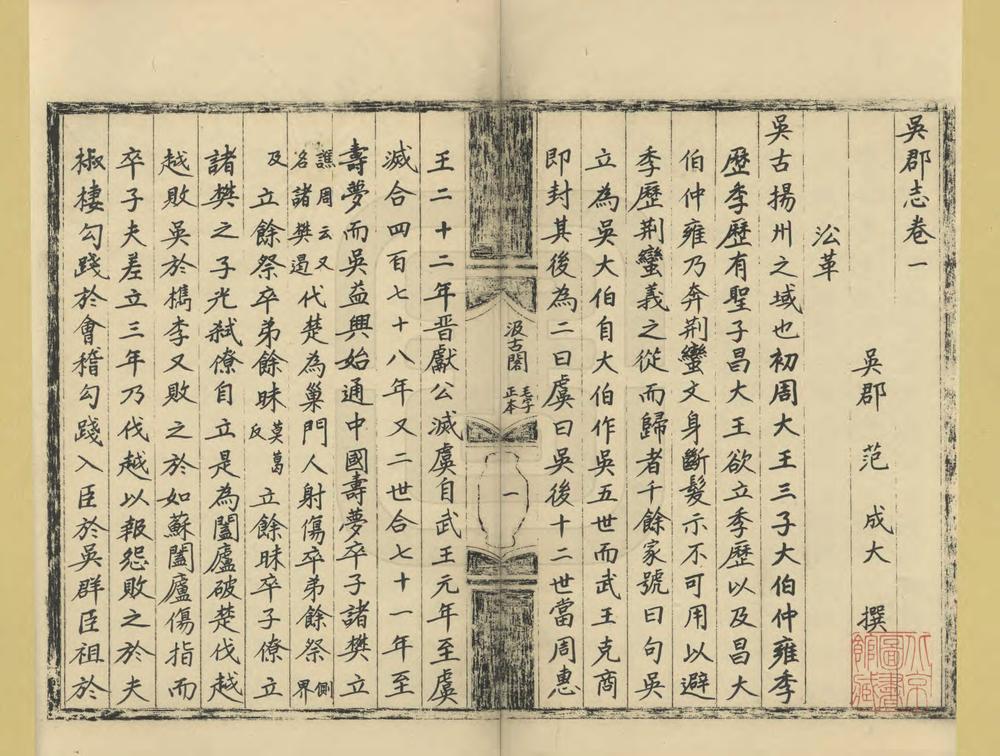 吳郡志卷一
吳郡 范成大 撰
㳂革
吳古揚州之域也初周大王三子大伯仲雍季
歷季歷有聖子昌大王欲立季歷以及昌大
伯仲雍乃奔荆蠻文身斷髮示不可用以避
季歷荆蠻義之從而歸者千餘家號曰句吳
立為吳大伯自大伯作吳五世而武王克商
即封其後為二曰虞曰吳後十二世當周惠
汲古閣
毛氏
正本
一
王二十二年晋獻公滅虞自武王元年至虞
滅合四百七十八年又二世合七十一年至
壽夢而吳益興始通中國壽夢卒子諸樊立
譙周云又
名諸樊遏
代楚為巢門人射傷卒弟餘祭
側
界
及
立餘祭卒弟餘昧
莫葛
反
立餘昧卒子僚立
諸樊之子光弑僚自立是為闔廬破楚伐越
越敗吳於檇李又敗之於如蘇闔廬傷指而
卒子夫差立三年乃伐越以報怨敗之於夫
椒棲勾踐於會稽勾踐入臣於吳群臣祖於
北京
圖書
館藏